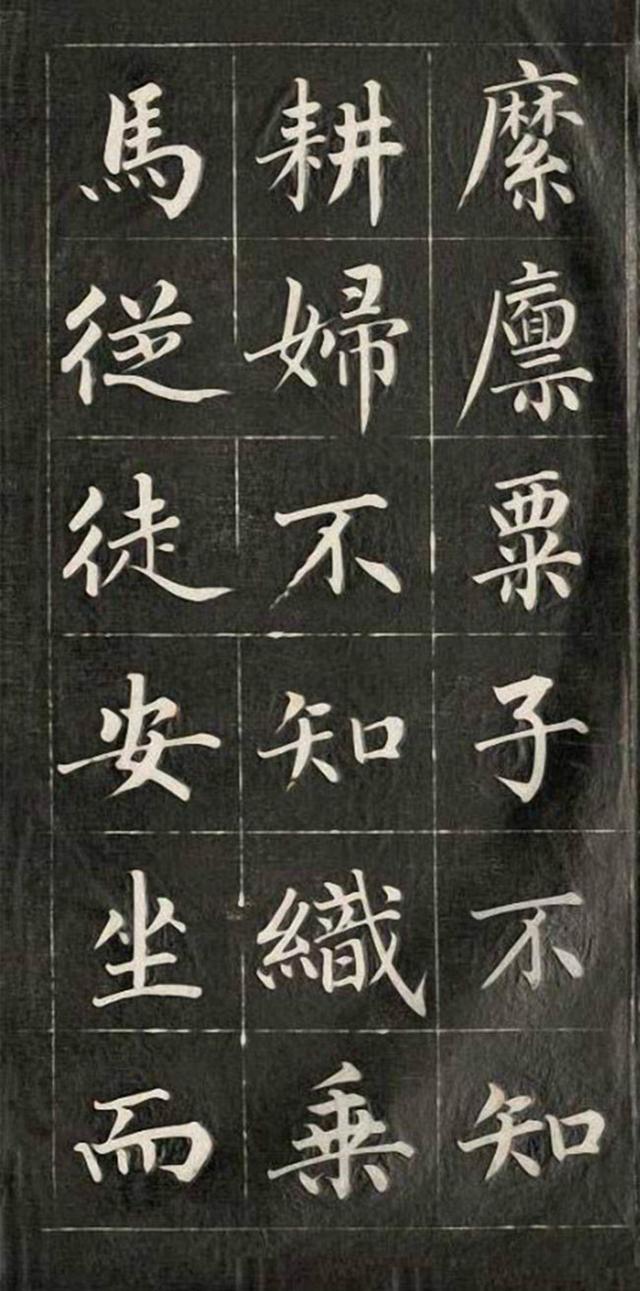 縻廪粟子不知
耕婦不知織乗
馬従徒安坐而